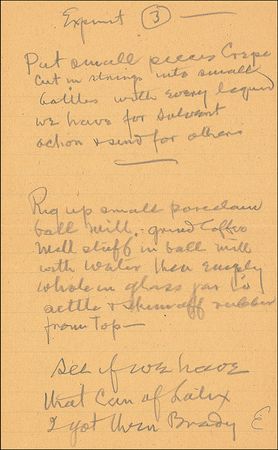 Expmnt ③ —
Put small pieces Crepe
Cut in strings into small
bottles with every liquid
we have for solvent
action & send for others
Rig up small porcelain
ball mill, - grind
mill stuff in ball mill
with water then empty
whole in glass jar to
settle & skim off rubber
from Top—
See if we have
that Can of Latex
I got thru Brady E